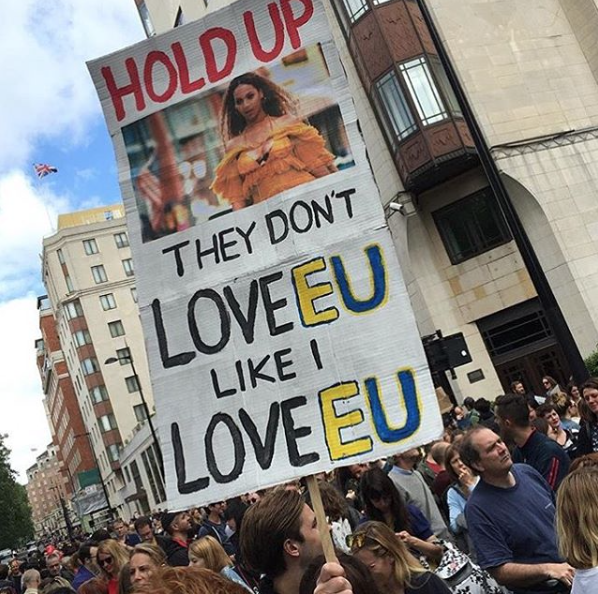 HOLD UP
THEY DON'T
LOVE EU
LIKE I
LOVE EU